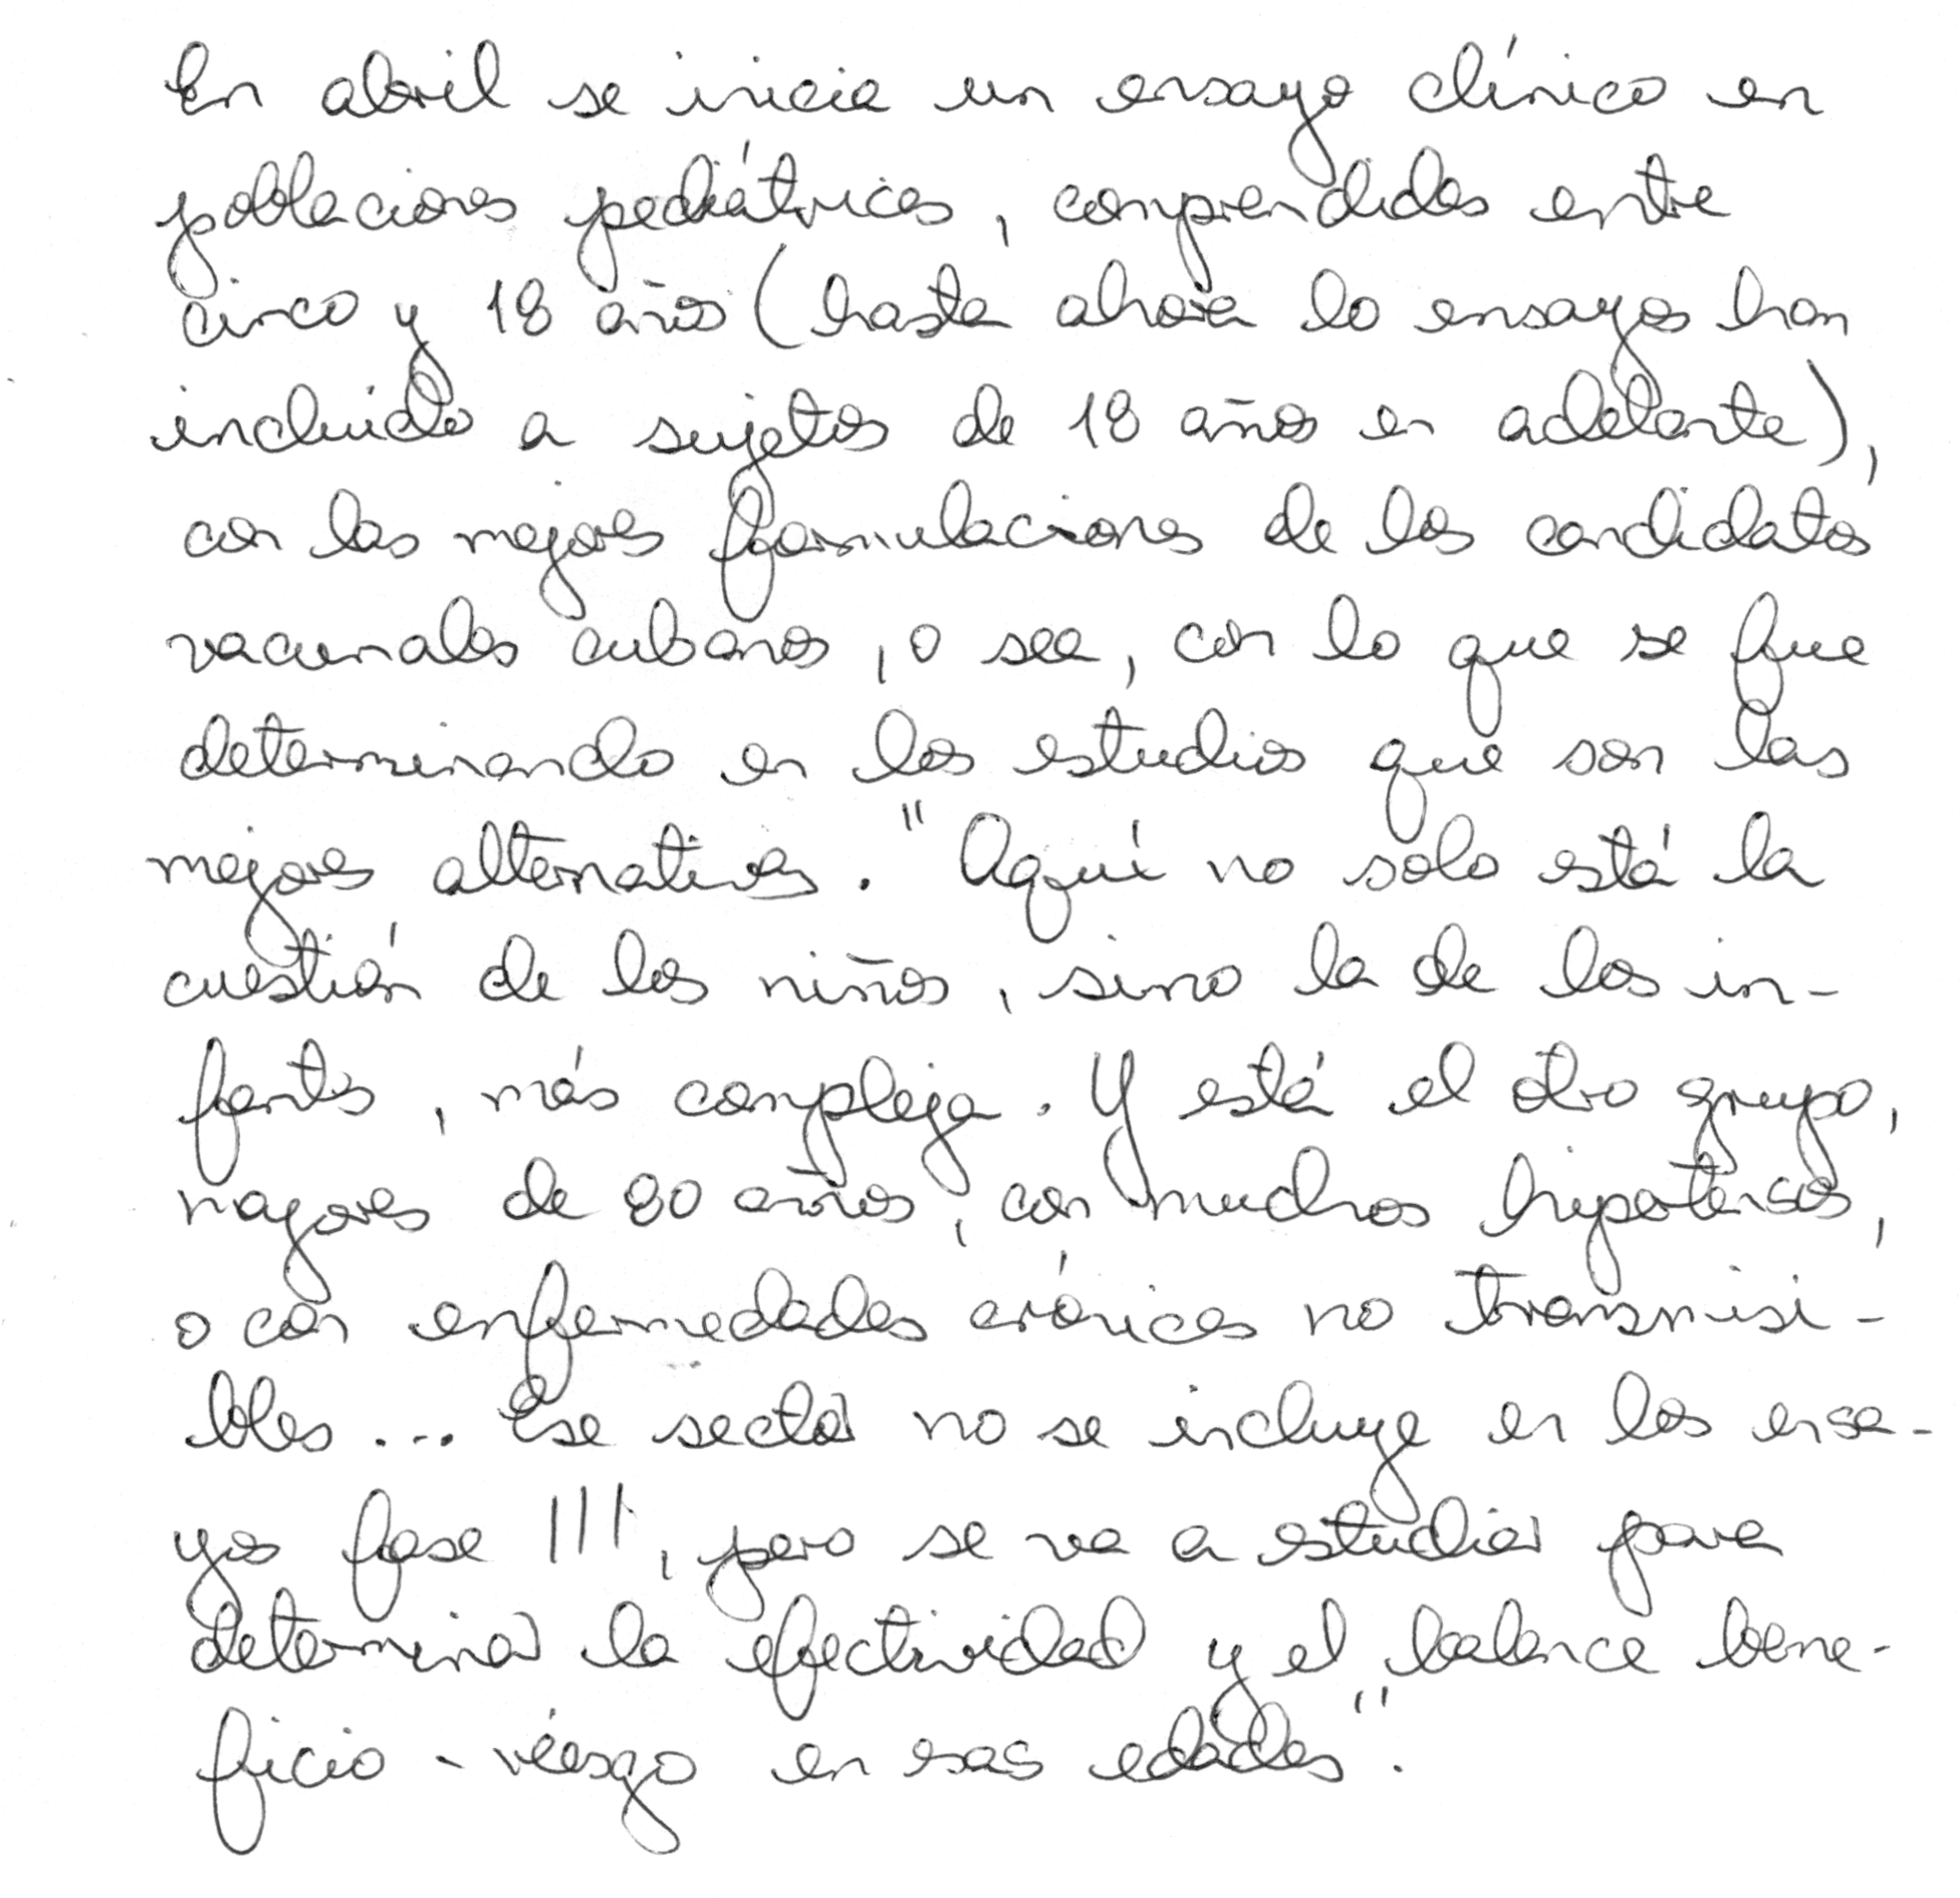 En abril se inicia un ensayo clínico en
poblaciones pediátricas, comprendidas entre
cinco y 18 años (hasta ahora lo ensayos han
incluido a sujetos de 18 años en adelante),
con las mejores formulaciones de los candidatos
vacunales cubanos, o sea, con lo que se fue
determinando en los estudios que son las
mejores alternativas. "Aquí no solo está la
cuestión de los niños, sino la de los in-
fantes, más compleja. Y está el otro grupo,
mayores de 80 años, con muchos hipotensos,
o con enfermedades crónicas no transmisi-
bles... Ese sector no se incluye en los ensa-
yos fase III, pero se va a estudiar para
determinar la efectividad y el balance bene-
ficio - riesgo en esas edades".